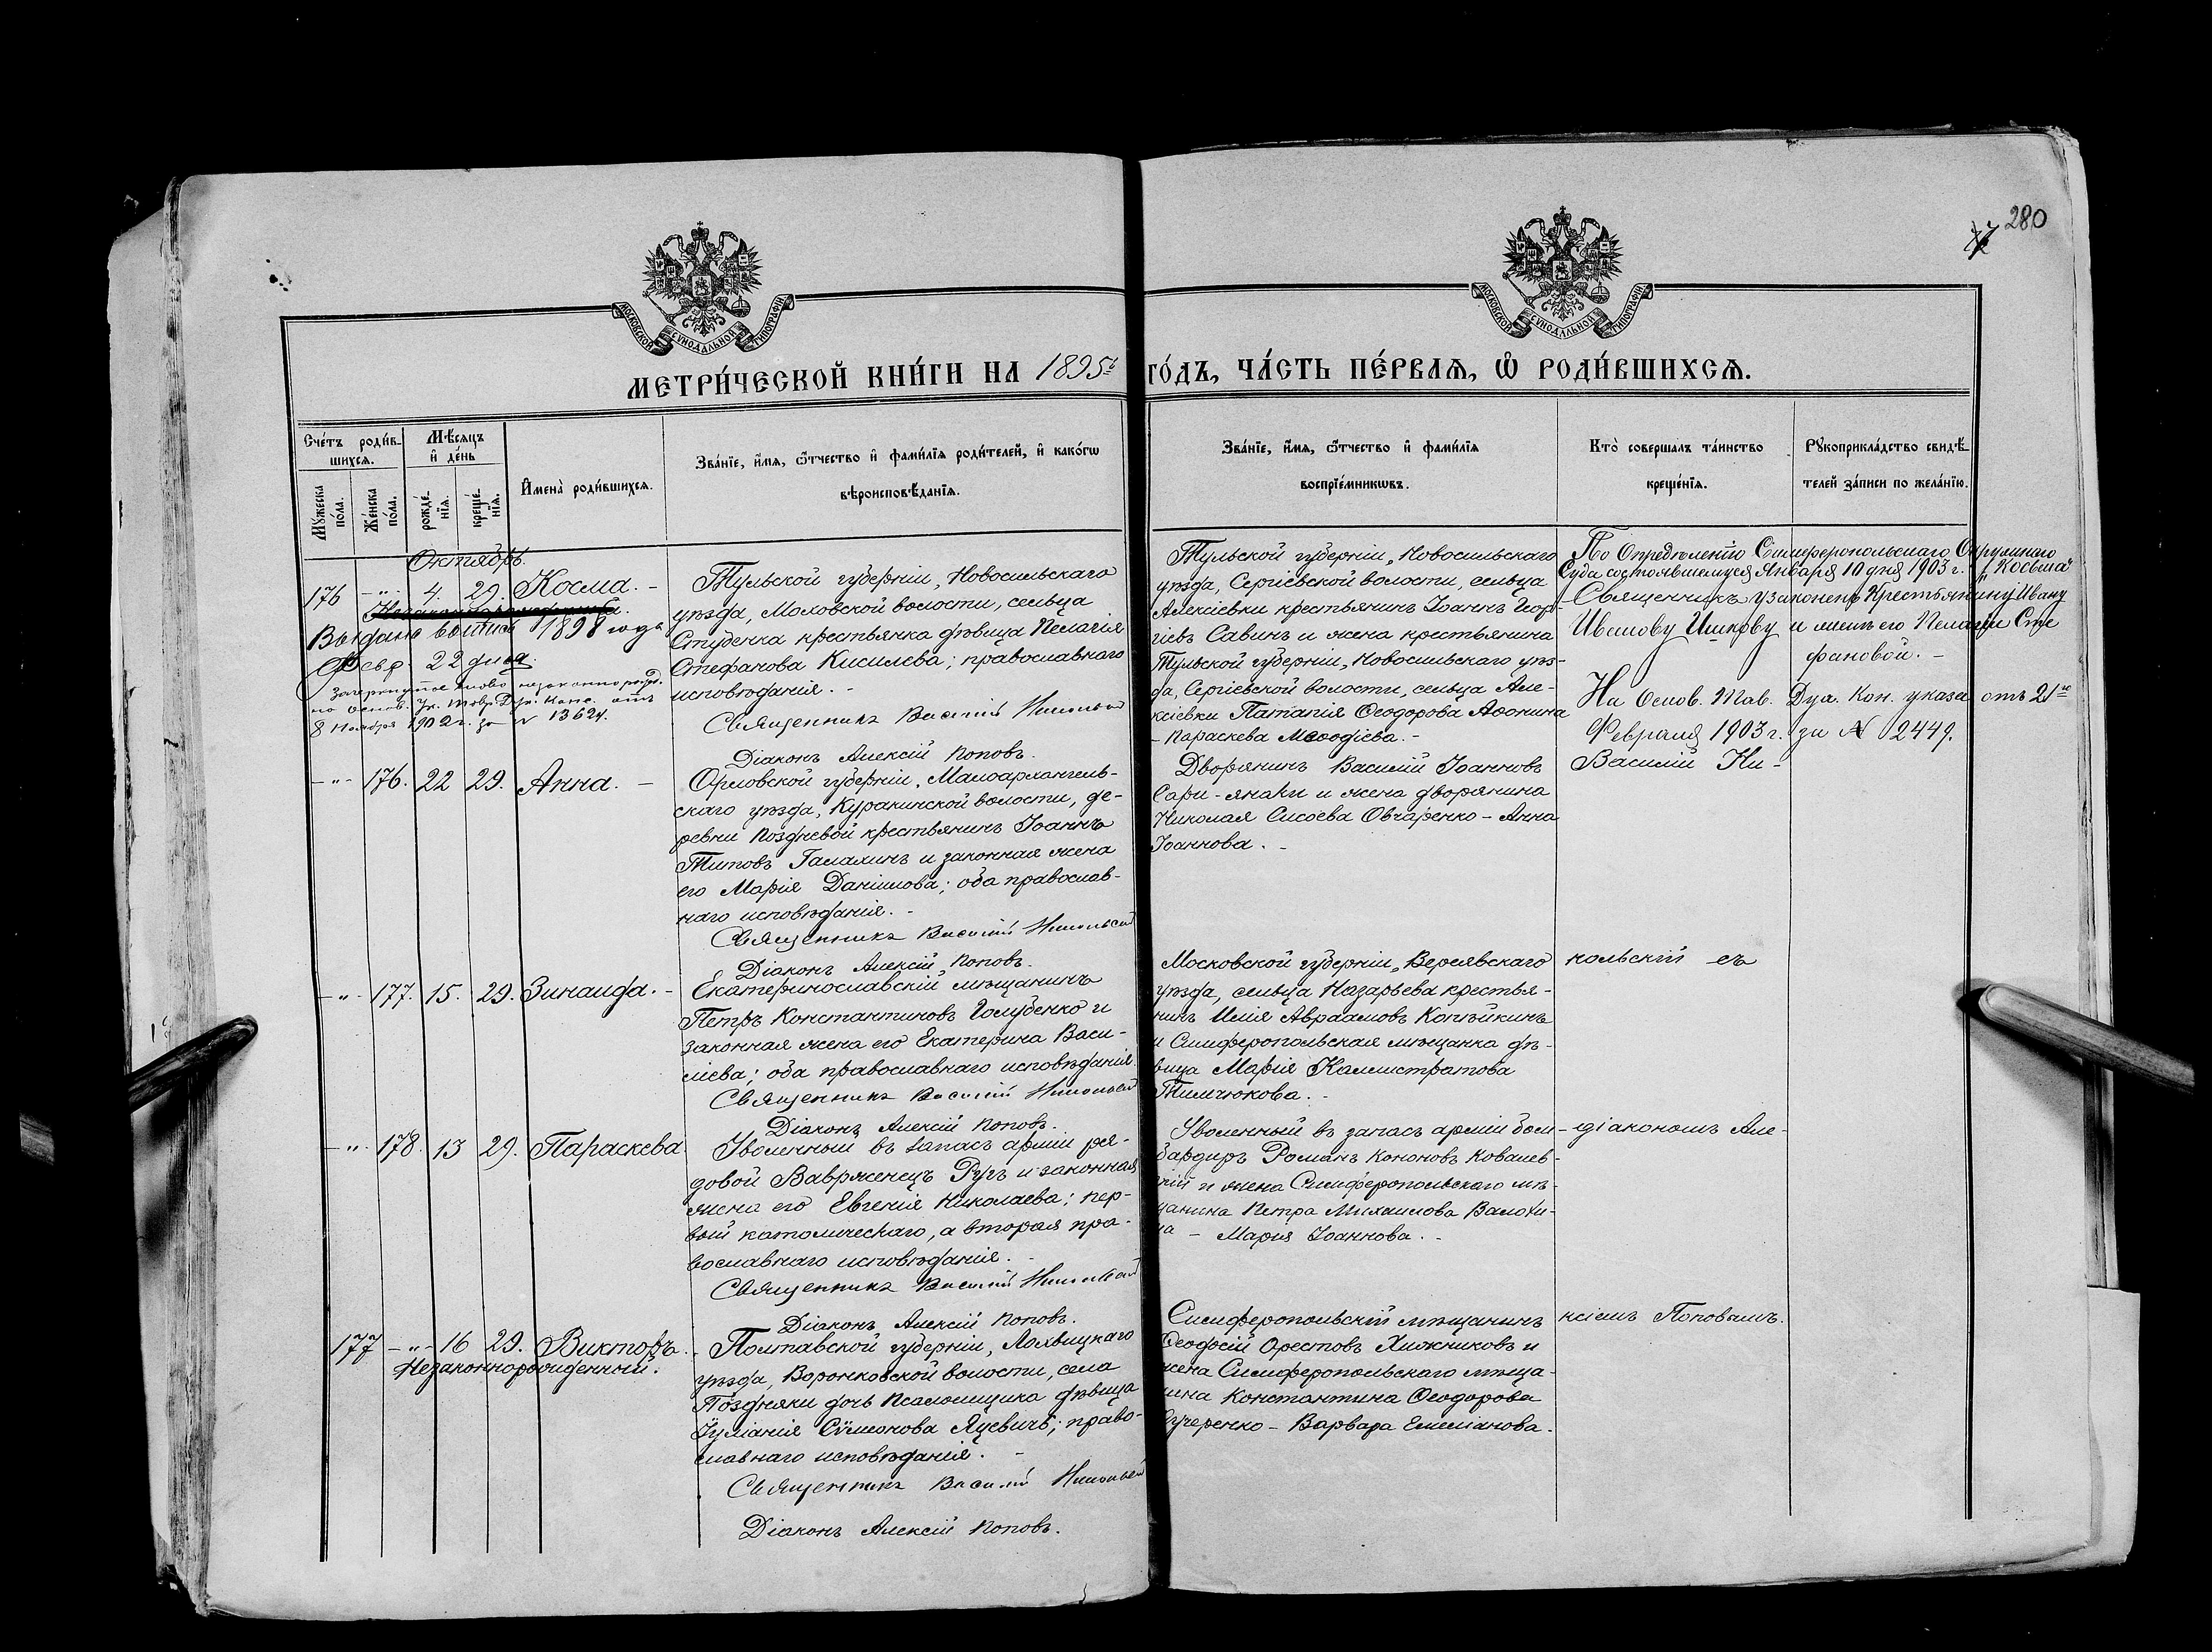 280
МОСКОВСКОЙ СѴНОДАЛЬНОЙ ТИПОГРАФІИ
МОСКОВСКОЙ СѴНОДАЛЬНОЙ ТИПОГРАФІИ
МЕТРИ́ЧЕСКОЙ КНИ́ГИ НА 1895й ГО́ДЪ, ЧА́СТЬ ПЕ́РВАѦ, Ѡ РОДИ́ВШИХСѦ.
Сче́тъ роди́в-
шихсѧ.
Мѣ́сѧцъ
и де́нь
Мꙋжеска по́ла.
Же́нска по́ла.
рожде́-нїѧ.
креще́-нїѧ.
Имена̀ роди́вшихсѧ.
Зва́нїе, и́мѧ, ѻ́тчество и фами́лїѧ роди́телей, и како́гѡ
вѣроисповѣ́данїѧ.
Зва́нїе, и́мѧ, ѻ́тчество и фами́лїѧ
воспрїе́мникѡвъ.
Кто̀ соверша́лъ та́инство
креще́нїѧ.
Рꙋкоприкла́дство свидѣ́-
телей за́писи по жела́нїю.
Октябрь.
176 -"- 4. 29. Косма. -
Незаконнорожденный.
Выдана выпись 1898 года
Февр. 22 дня.
Зачеркнутое слово незаконнорожд.
по основ. Ук. Тавр. Дух. Конс. отъ
8 Ноября 1902 г. за № 13624.
Тульской губерніи, Новосильскаго
уѣзда, Моховской волости, сельца
Студенка крестьянка дѣвица Пелагія
Стефанова Кисилева; православнаго
исповѣданія. -
Священникъ Василій Никольскій
Діаконъ Алексій Поповъ.
Тульской губерніи, Новосильскаго
уѣзда, Сергіевской волости, сельца
Алексіевки крестьянинъ Іоаннъ Геор-
гіевъ Савинъ и жена крестьянина
Тульской губерніи, Новосильскаго уѣз-
да, Сергіевской волости, сельца Але-
ксіевки Патапія Ѳеодорова Аѳонина
- Параскева Меѳодіева. -
По Опредѣленію Симферопольскаго Окружнаго
Суда состоявшемуся Января 10 дня 1903 г. "Косьма"
Священникъ узаконенъ Крестьянину Ивану
Иванову и женѣ его Пелагіи Сте
фановой. -
На Основ. Тав. Дух. Кон. указа отъ 21го
Февраля 1903 г. за № 2449.
-"- 176. 22 29. Анна. -
Орловской губерніи, Малоархангель-
скаго уѣзда, Куракинской волости, де-
ревни Поздневой крестьянинъ Іоаннъ
Титовъ Галахинъ и законная жена
его Марія Даніилова; оба православ-
наго исповѣданія. -
Священникъ Василій Никольскій
Діаконъ Алексій Поповъ.
Дворянинъ Василій Іоанновъ
Сари-янаки и жена дворянина
Николая Сисоева Овчаренко - Анна
Іоаннова. -
Василій Ни-
-"- 177. 15. 29. Зинаида. -
Екатеринославскій мѣщанинъ
Петръ Константиновъ Голубенко и
законная жена его Екатерина Васи-
ліева; оба православнаго исповѣданія.
Священникъ Василій Никольскій
Діаконъ Алексій Поповъ.
Московской губерніи, Верейвскаго
уѣзда, сельца Назарьева крестья-
нинъ Илія Авраамовъ Копѣйкинъ
и Симферопольская мѣщанка дѣ-
вица Марія Каллистратова
Тимчюкова. -
кольскій съ
-"- 178. 13 29. Параскева
Уволенный въ запасъ арміи ря-
довой Ваврженецъ Ругъ и законная
жена его Евгенія Николаева; пер-
вый католическаго, а вторая пра-
вославнаго исповѣданія. -
Священникъ Василій Никольскій
Діаконъ Алексій Поповъ.
Уволенный въ запасъ арміи бом-
бардиръ Романъ Кононовъ Ковалев-
скій и жена Симферопольскаго мѣ-
щанина Петра Михаилова Валохи-
на - Марія Іоаннова. -
діакономъ Але-
177 -"- 16 29. Викторъ. -
Незаконнорожденный.
Полтавской губерніи, Лохвицкаго
уѣзда, Воронковской волости, села
Поздняки дочь псаломщика дѣвица
Іуліанія Сѵмеонова Яцевичъ; право-
славнаго исповѣданія. -
Священникъ Василій Никольскій
Діаконъ Алексій Поповъ.
Симферопольскій мѣщанинъ
Ѳеодосій Орестовъ Хижниковъ и
жена Симферопольскаго мѣща-
нина Константина Ѳеодорова
Кучеренко - Варвара Емеліанова.
ксіемъ Поповымъ.